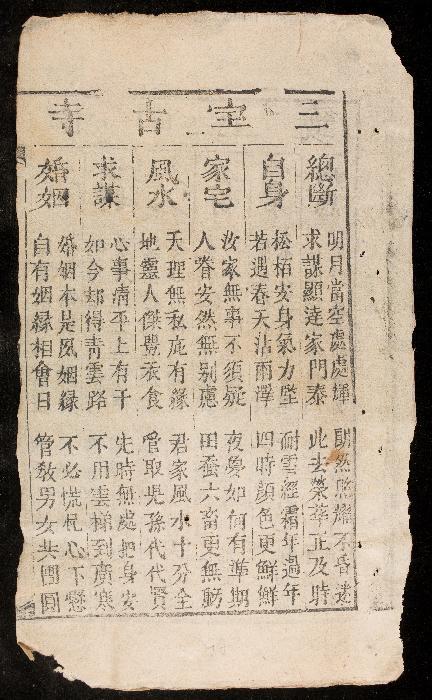 三宝古寺
總斷
明月當空處處輝 朗然照耀不昏迷
求謀顯達家門泰 此去榮華正及時
自身
松栢安身氣力堅 耐雪經霜年過年
若遇春天沾雨澤 四時顏色更鮮鮮
家宅
汝家無事不須疑 夜夢如何有準期
人眷安然無别慮 田蚕六畜更無虧
風水
天理無私庇有緣 君家風水十分全
地靈人傑豐衣食 管取児孫代代賢
求謀
心事清平上有干 先時無處把身安
如今却得青雲路 不用雲梯到廣寒
婚姻
婚姻本是夙姻緣 不必慌忙心下懸
自有姻緣相會日 管敎男女共團圓